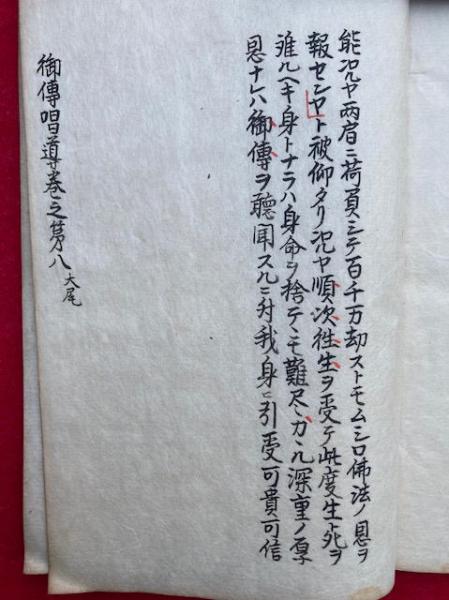 能況ヤ両肩ニ荷負シテ百千万劫ストモムシロ佛法ノ恩ヲ
報センヤト被仰タリ況ヤ順次徃生ヲ受テ此度生死ヲ
離ルヘキ身トナラハ身命ヲ捨テヽモ難尽カヽル深重ノ厚
恩ナレハ御傳ヲ聴聞スルニ付我身ニ引受可貴可信
御傳唱導巻之第八大尾